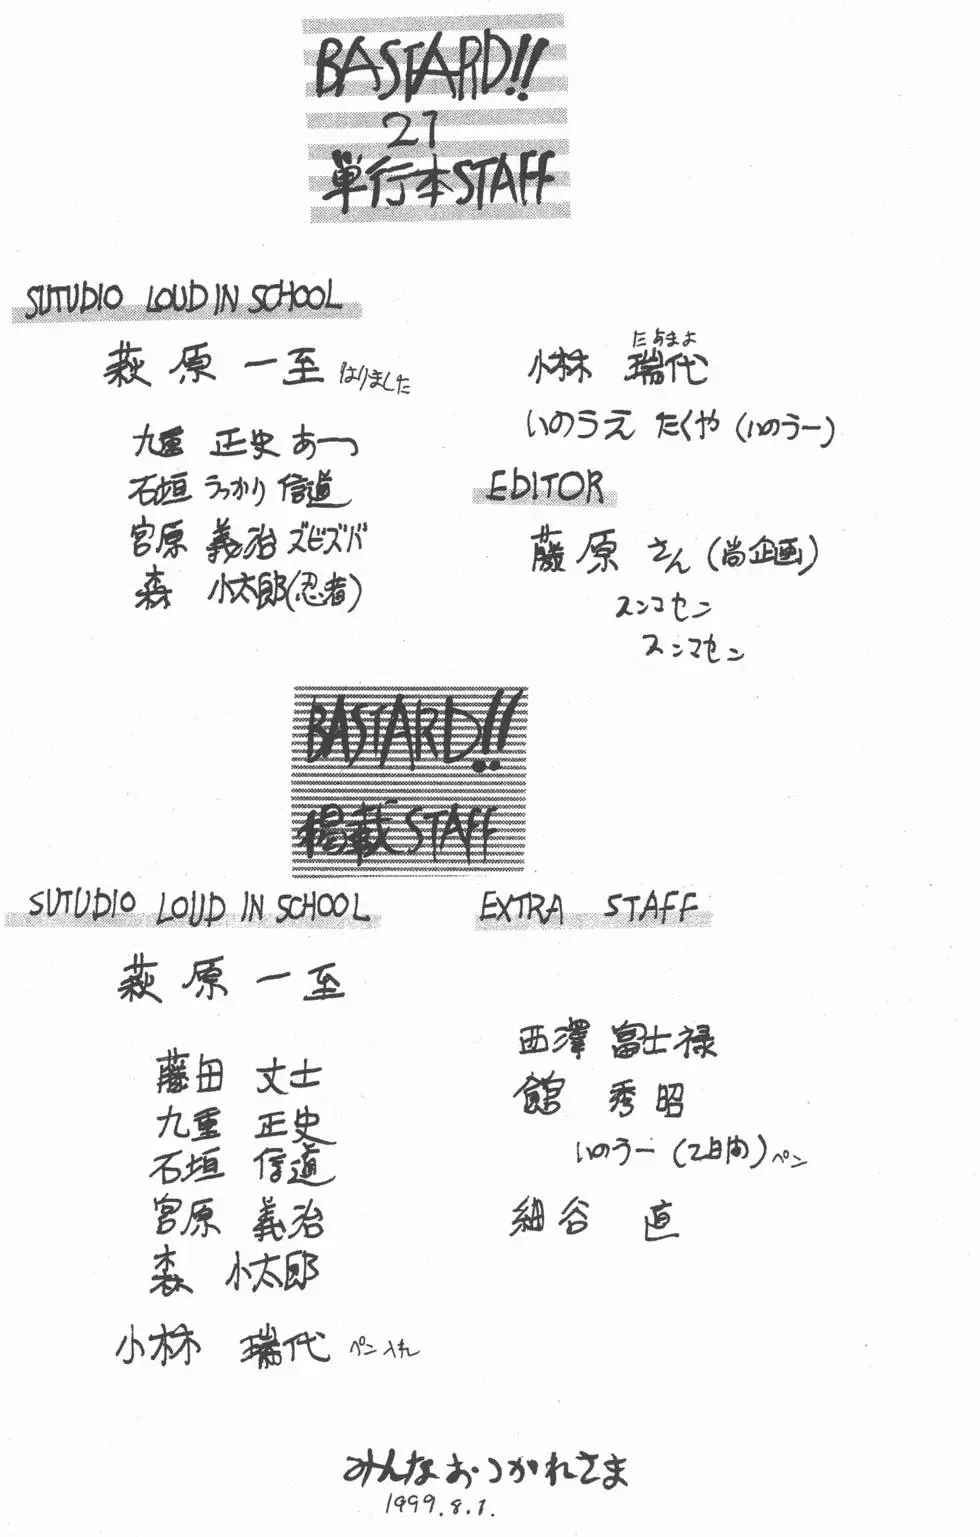 BASTARD!!
21
単行本STAFF
SUTUDIO LOUD IN SCHOOL
萩原 一至 はりました
九重 正史 あーっ
石垣 うっかり 信道
宮原 義治 ズビズバ
森 小太郎(忍者)
小林 瑞代
いのうえ たくや (いのうー)
EDITOR
藤原 さん (尚企画)
スンマセン
スンマセン
BASTARD!!
掲載STAFF
SUTUDIO LOUD IN SCHOOL
萩原 一至
藤田 丈士
九重 正史
石垣 信道
宮原 義治
森 小太郎
小林 瑞代 ペン入れ
EXTRA STAFF
西澤 富士禄
館 秀昭
いのうー (2日間) ペン
細谷 直
みんなおつかれさま
1999.8.1.